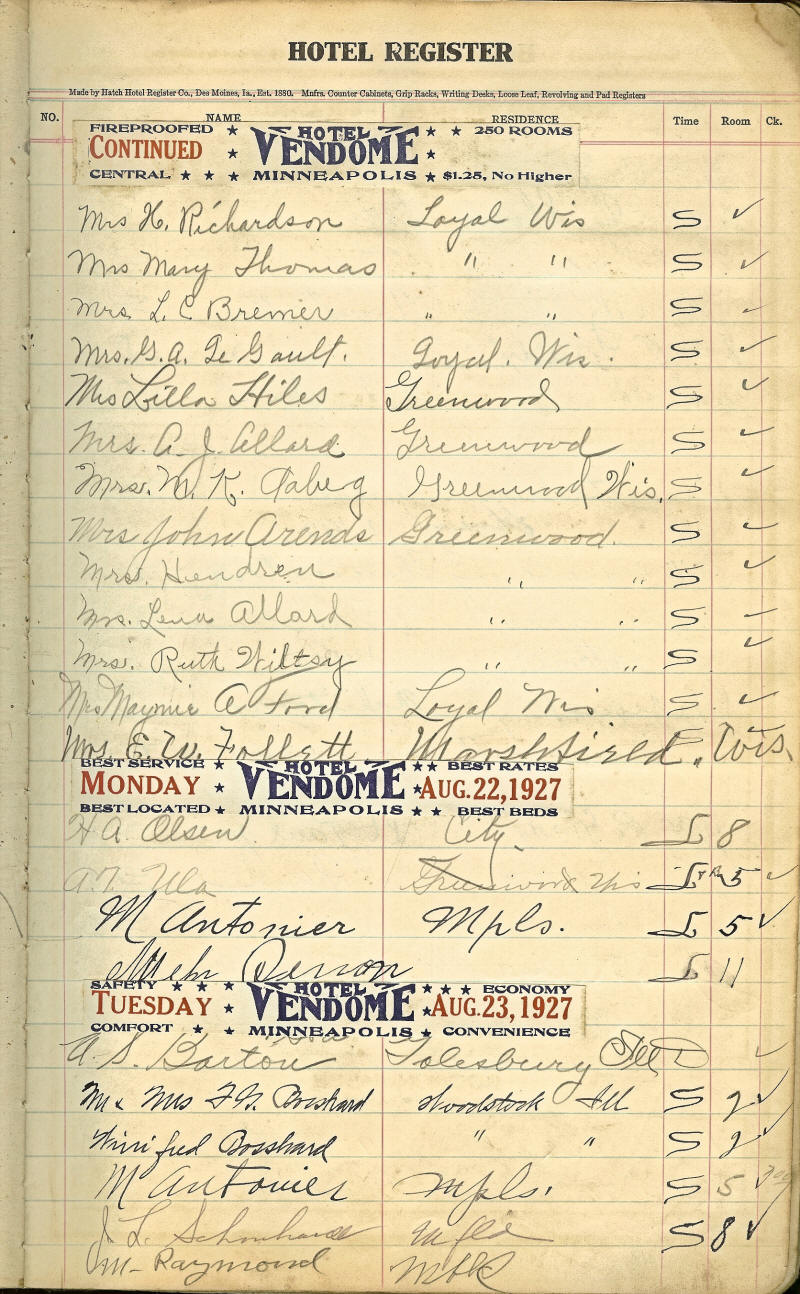 HOTEL REGISTER
Made by Hatch Hotel Register Co., Des Moines, Ia., Est. 1880. Mnfrs. Counter Cabinets, Grip Racks, Writing Desks, Loose Leaf, Revolving and Pad Registers
NO. NAME RESIDENCE Time Room Ck.
FIREPROOFED ★ HOTEL ★ ★ 250 ROOMS
CONTINUED ★ VENDOME ★
CENTRAL ★ ★ ★ MINNEAPOLIS ★ $1.25, No Higher
Mrs H. Richardson Loyal Wis S ✓
Mrs Mary Thomas " " S ✓
Mrs. L. C Bremer " " S ✓
Mrs. G. A. De Gault. Loyal. Wis. S ✓
Mrs Lilla Hiles Greenwood S ✓
Mrs. A. J. Allard Greenwood S ✓
Mrs. M. K. Aaberg Greenwood Wis. S ✓
Mrs John Arends Greenwood. S ✓
Mrs. Hendren " " S ✓
Mrs. Lena Allard " " S ✓
Mrs. Ruth Wiltsy " " S ✓
Mrs Maymie A Ford Loyal Wis S ✓
Mrs. E. W. Follett Marshfield, Wis.
BEST SERVICE ★ HOTEL ★★ BEST RATES
MONDAY VENDOME ★ AUG. 22, 1927
BEST LOCATED ★ MINNEAPOLIS ★ ★ BEST BEDS
H A. Olsen City. L 8
A. Greenwood Wis L 5 ✓
M Antonier Mpls. L 5 ✓
L 11
SAFETY ★ ★ ★ HOTEL ★ ★ ★ ECONOMY
TUESDAY ★ VENDOME ★ AUG. 23, 1927
COMFORT ★ ★ MINNEAPOLIS ★ CONVENIENCE
A. S. Barton Galesburg Ill D ✓
Mr & Mrs F. G. Bosshard Woodstock Ill S 2 ✓
Winifred Bosshard " " S 2 ✓
M Antonier Mpls. S 5 ✓
J. L. Mfld S 8 ✓
M- Raymond